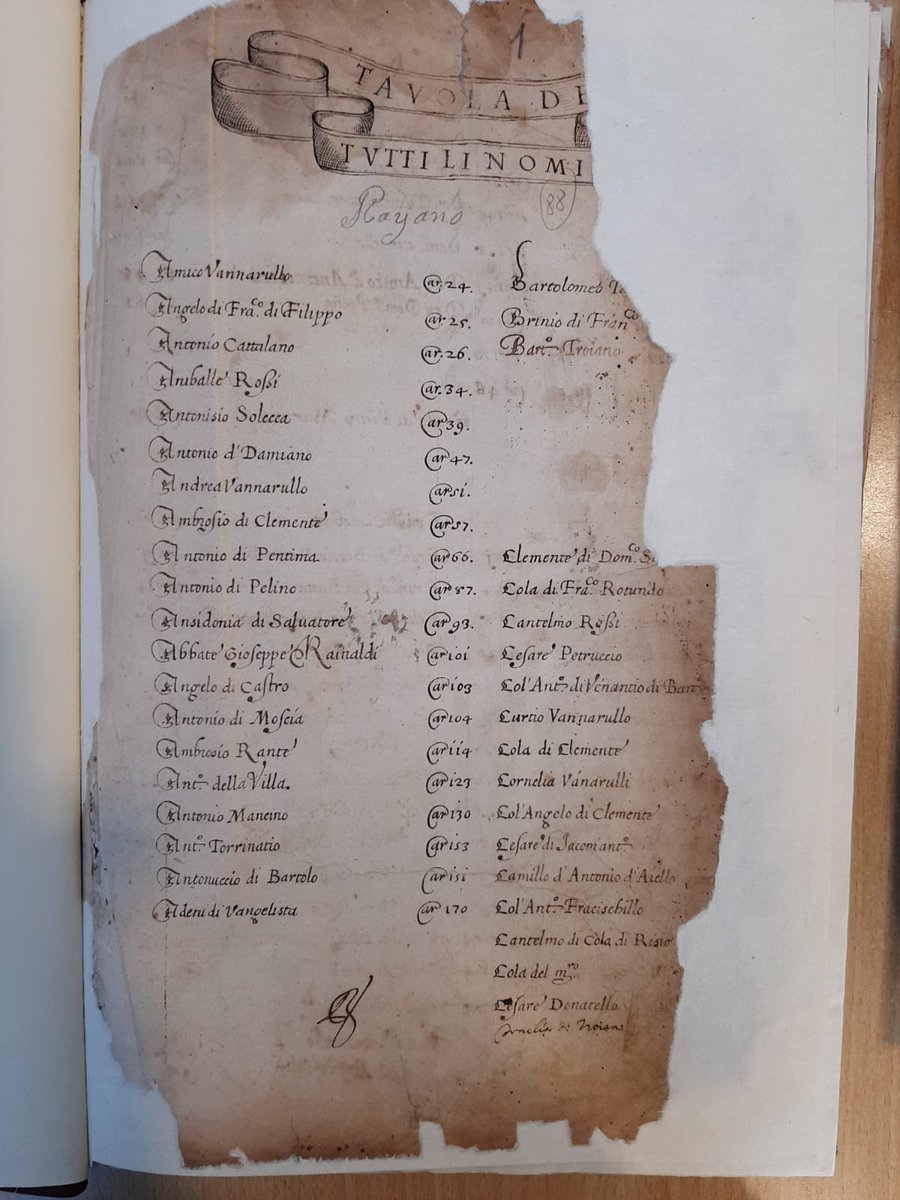 1
TAVOLA DE
TVTTI LI NOMI
88
Rayano
Amico Vannarullo Car. 24.
Angelo di Fra.co di Filippo Car. 25.
Antonio Cattilano Car. 26.
Aniballe Rossi Car. 34.
Antonisio Solecca Car 39.
Antonio d'Damiano Car 47.
Andrea Vannarullo Car 51.
Ambrosio di Clemente Car 57.
Antonio di Pentima. Car 66.
Antonio di Pelino Car 87.
Ansidonia di Salvatore Car 93.
Abbate Gioseppe Rainaldi Car 101
Angelo di Castro Car 103
Antonio di Moscia Car 104
Ambrosio Rante Car 114
Ant.o della Villa. Car 123
Antonio Mancino Car 130
Ant.o Torrinatio Car 153
Antonuccio di Bartolo Car 151
di Vangelista Car 170
Bartolomeo
Brinio di Fran.co
Bart.o Troiano
Clemente di Dom.co
Cola di Fra.co Rotundo
Cantelmo Rossi
Cesare Petruccio
Col'Ant.o di Venantio di
Curtio Vannarullo
Cola di Clemente
Cornelia Vanarulli
Col'Angelo di Clemente
Cesare di Jacomant.o
Camillo d'Antonio d'Aiello
Col'Ant.o Fracischillo
Cantelmo di Cola di Risio
Cola del m.ro
Cesare Donatello